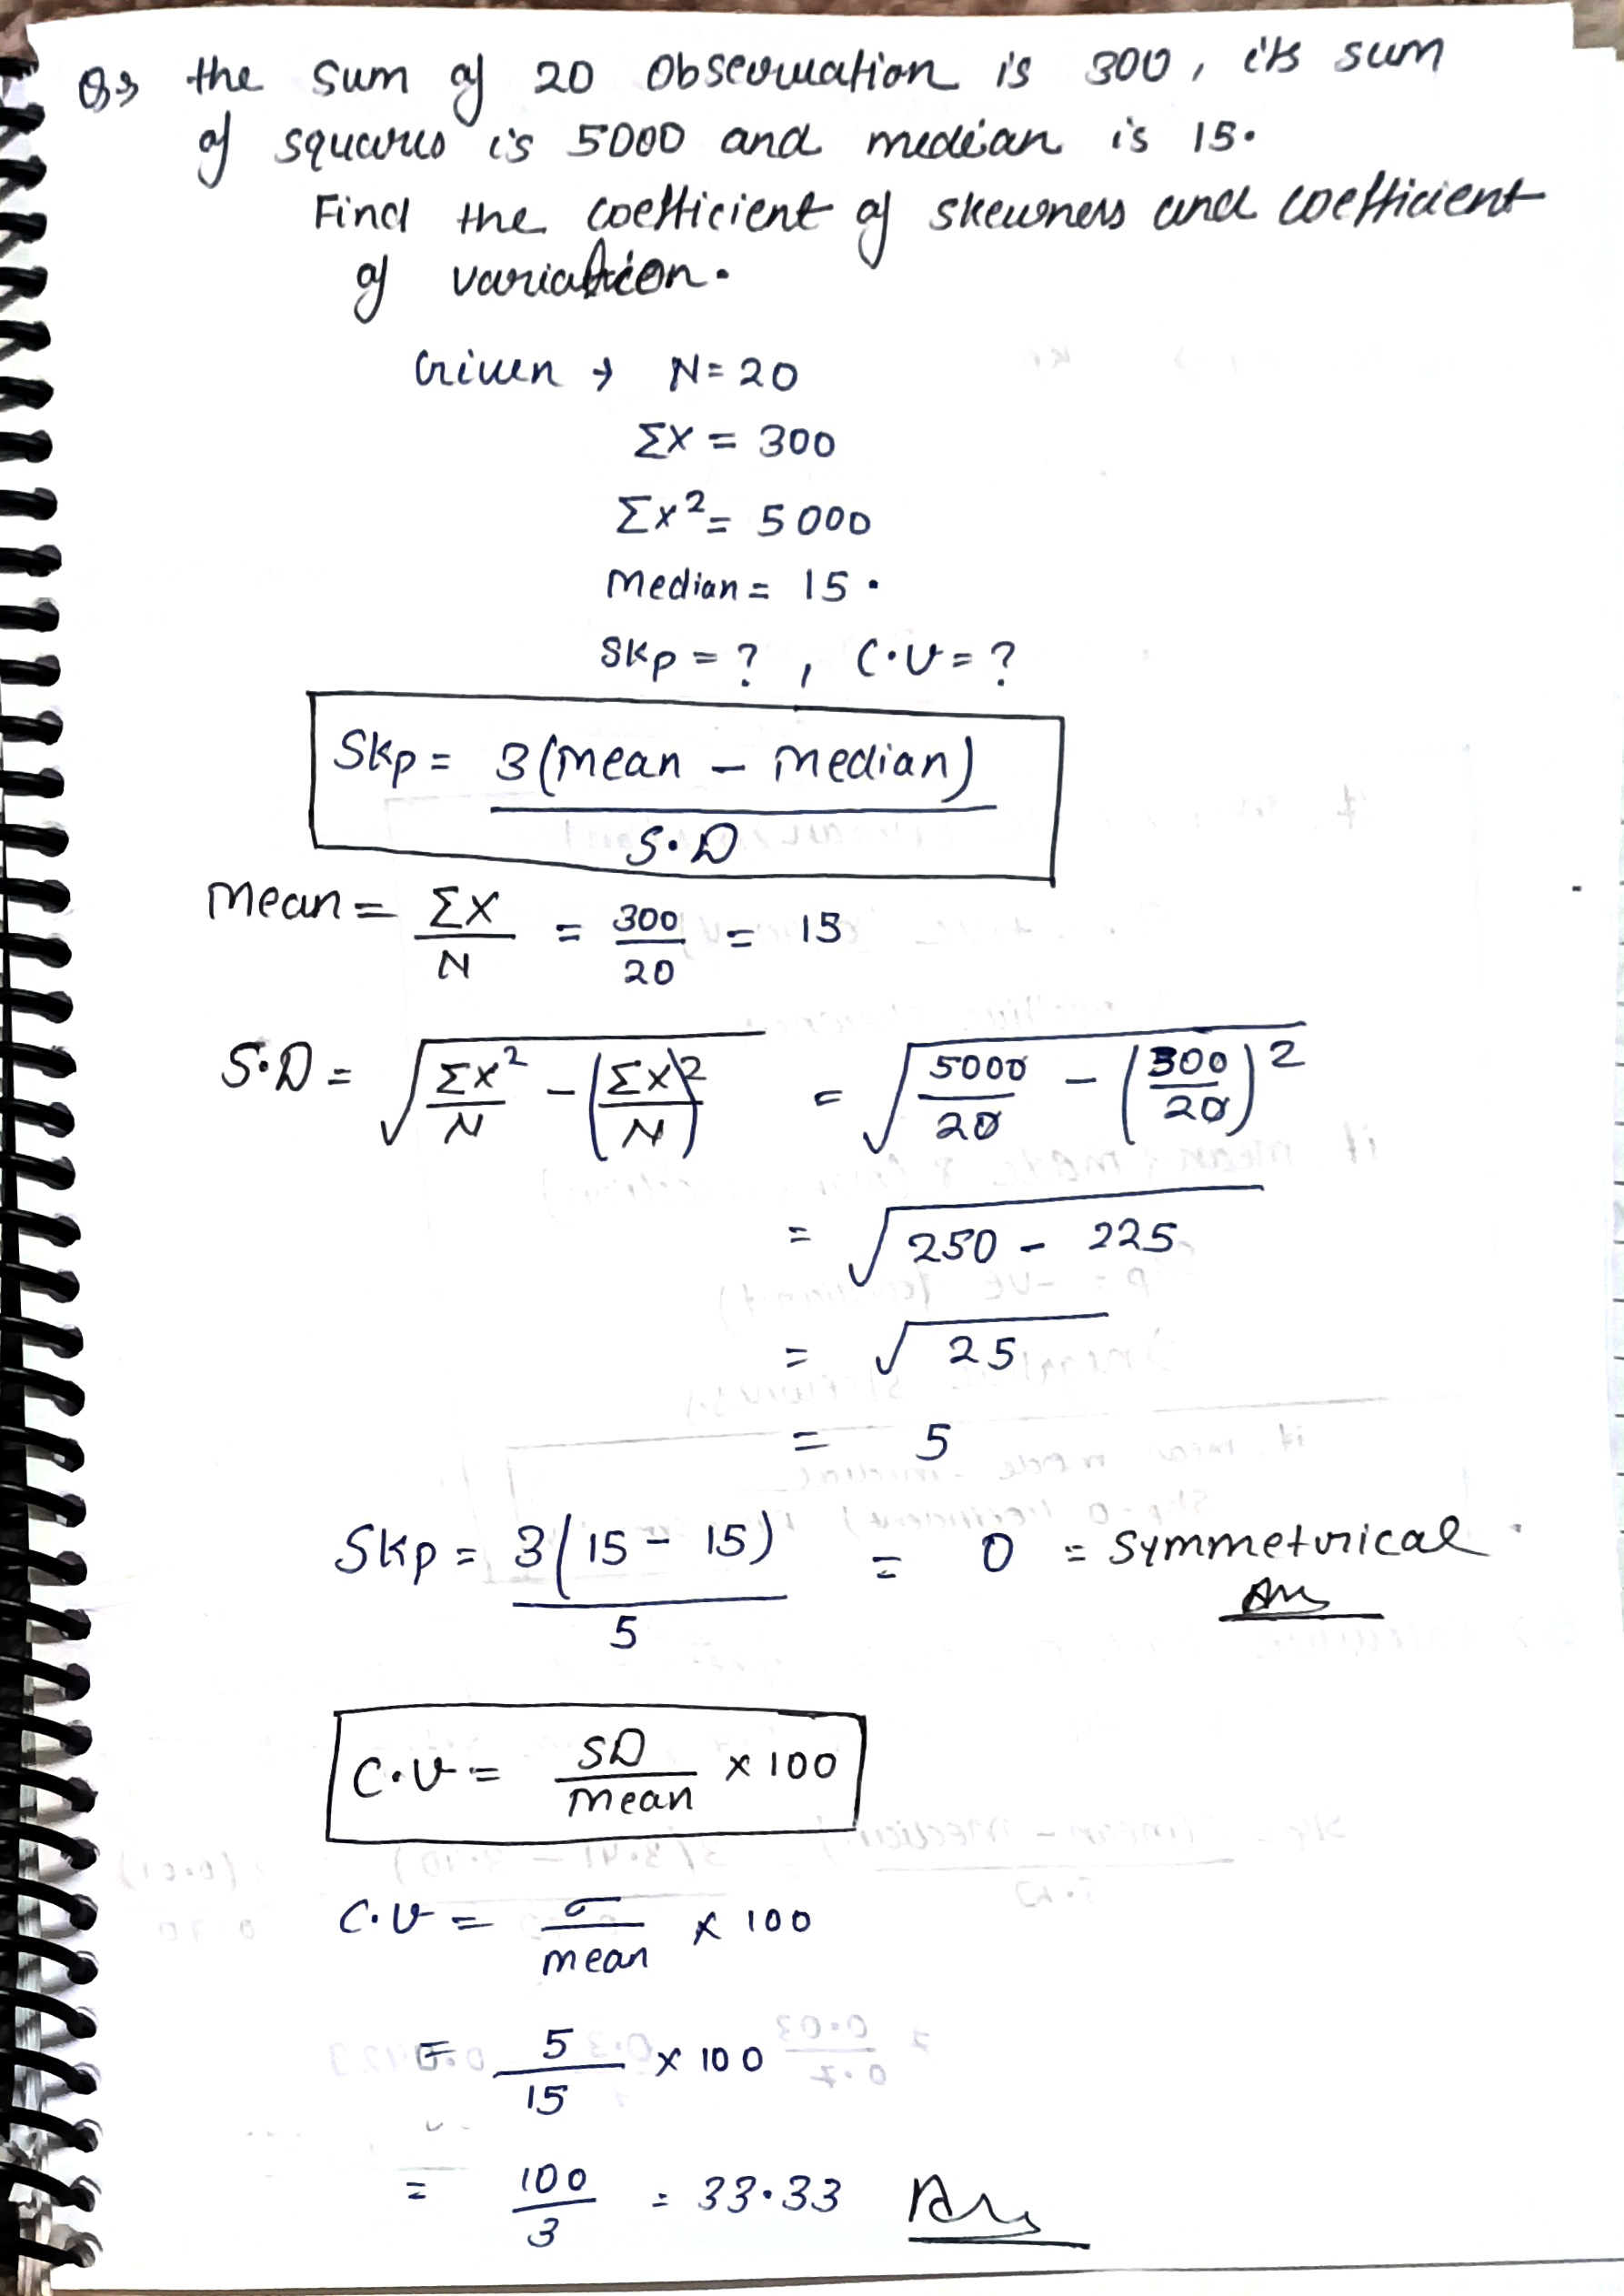 Q3 the sum of 20 Observation is 300, its sum
of squares is 5000 and median is 15.
Find the coefficient of skewness and coefficient
of variation.
Given → N = 20
ΣX = 300
Σx² = 5000
Median = 15.
Skp = ? , C.V = ?
Skp = 3(mean - median) / S.D
Mean = ΣX / N = 300 / 20 = 15
S.D = √(Σx² / N - (Σx / N)²) = √(5000 / 20 - (300 / 20)²)
= √(250 - 225)
= √25
= 5
Skp = 3(15 - 15) / 5 = 0 = Symmetrical.
Ans
C.V = SD / mean × 100
C.V = σ / mean × 100
= 5 / 15 × 100
= 100 / 3 = 33.33 Ans